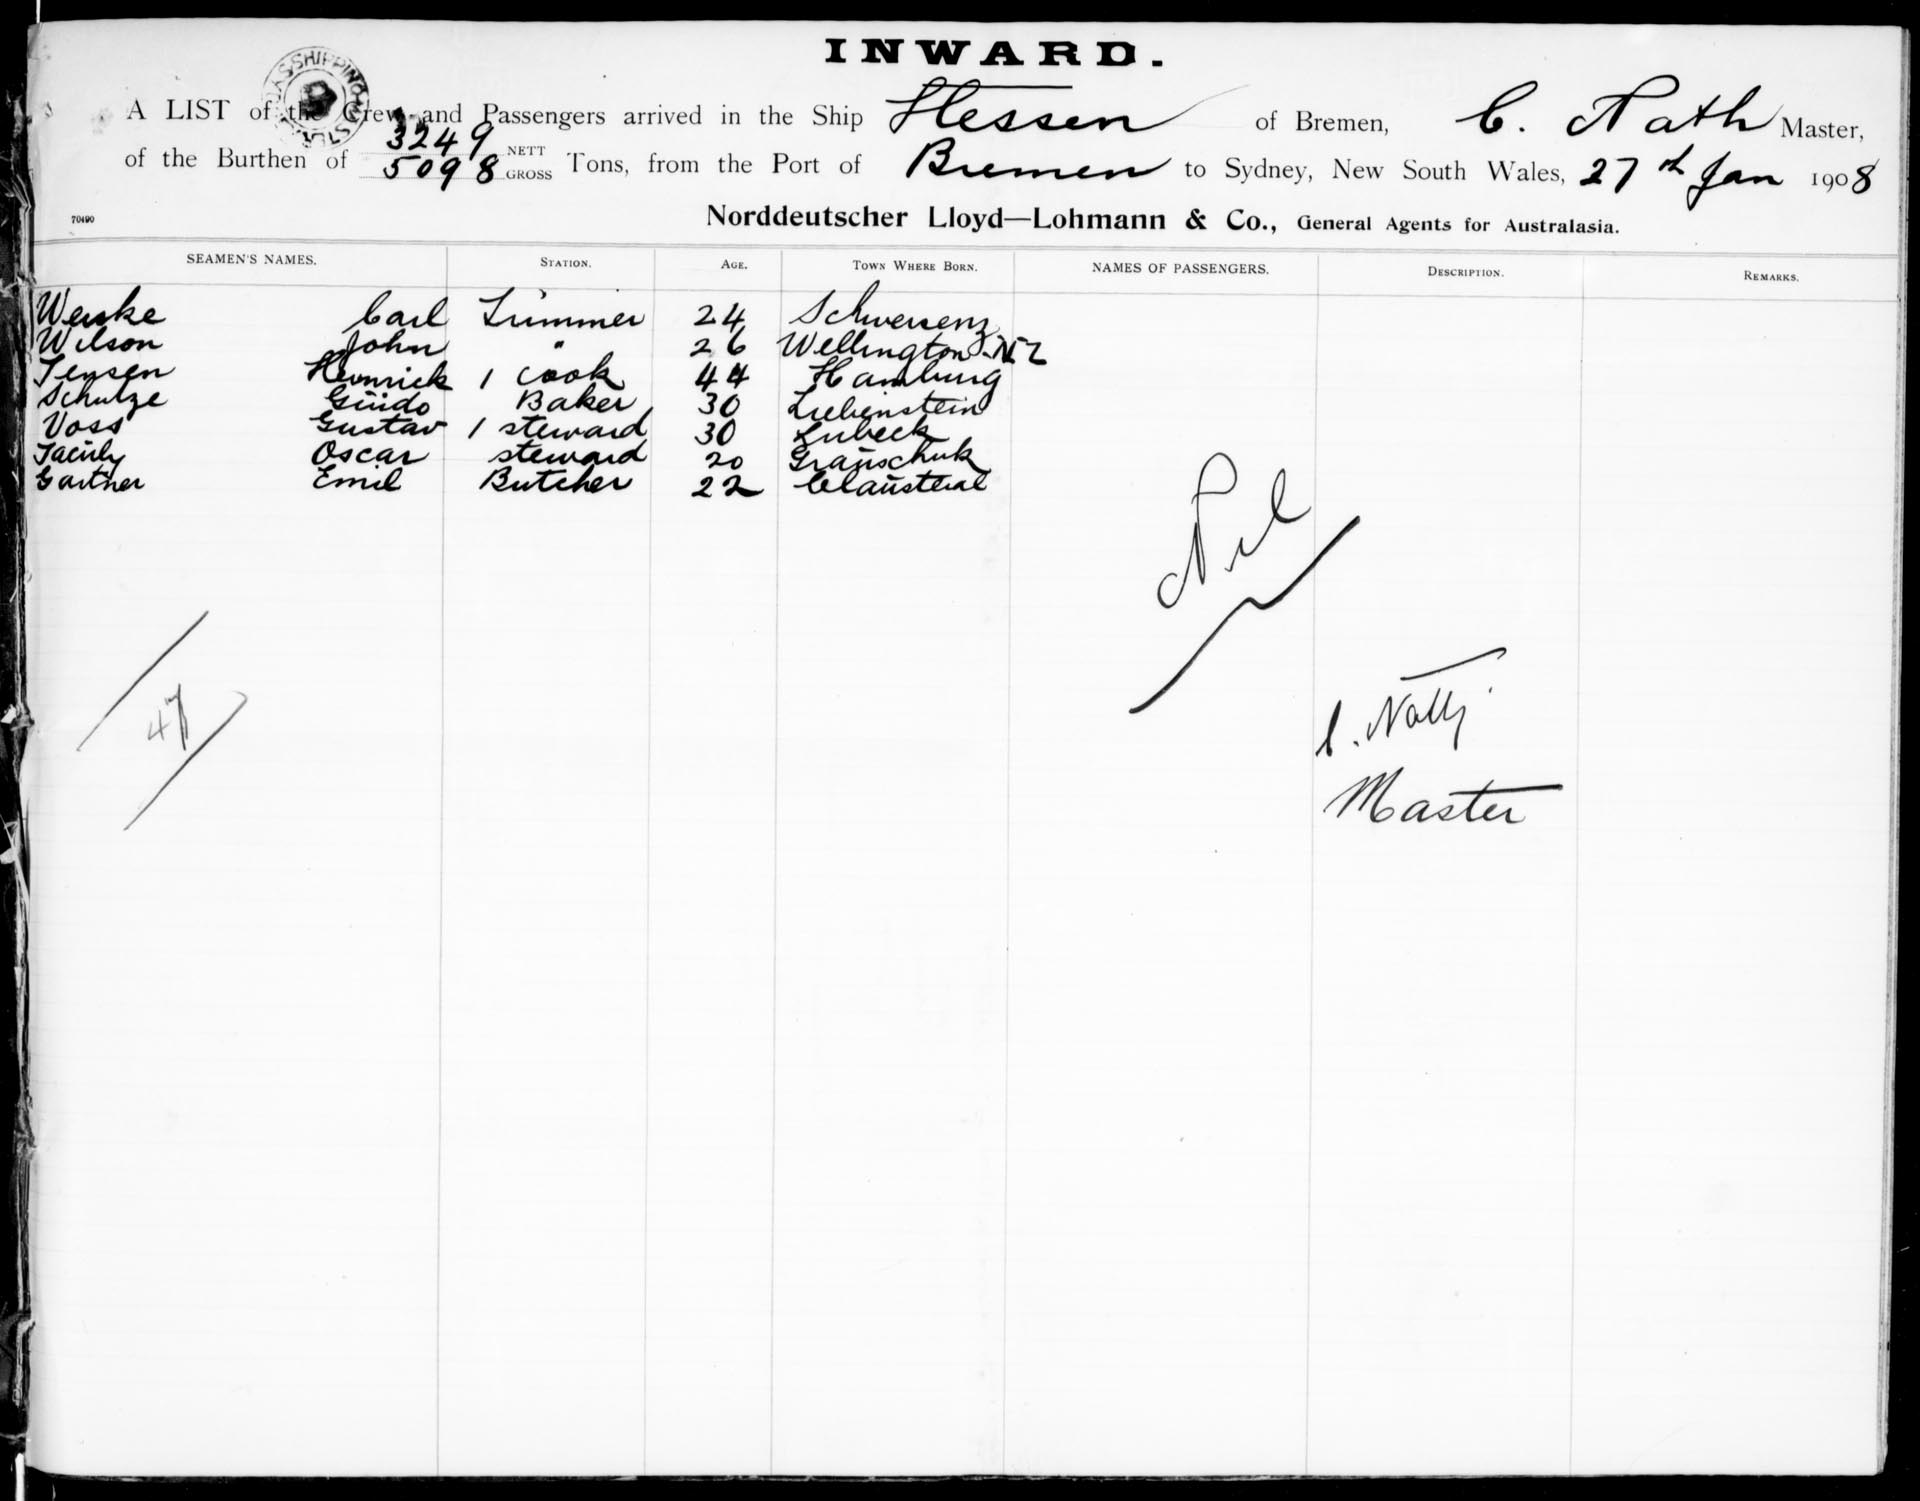 INWARD.
A LIST of the Crew and Passengers arrived in the Ship Hessen of Bremen, C. Nath Master,
of the Burthen of 3249 NETT 5098 GROSS Tons, from the Port of Bremen to Sydney, New South Wales, 27th Jan 1908
70490 Norddeutscher Lloyd—Lohmann & Co., General Agents for Australasia.
SEAMEN'S NAMES. STATION. AGE. TOWN WHERE BORN. NAMES OF PASSENGERS. DESCRIPTION. REMARKS.
Carl Trimmer 24 Schwersenz
Wilson John " 26 Wellington NZ
Jensen Heinrich 1 cook 44 Hamburg
Schulze Guido Baker 30 Liebenstein
Voss Gustav 1 steward 30 Lubeck
Oscar steward 20
Gartner Emil Butcher 22 Claustal
Nil
47
C. Nath
Master